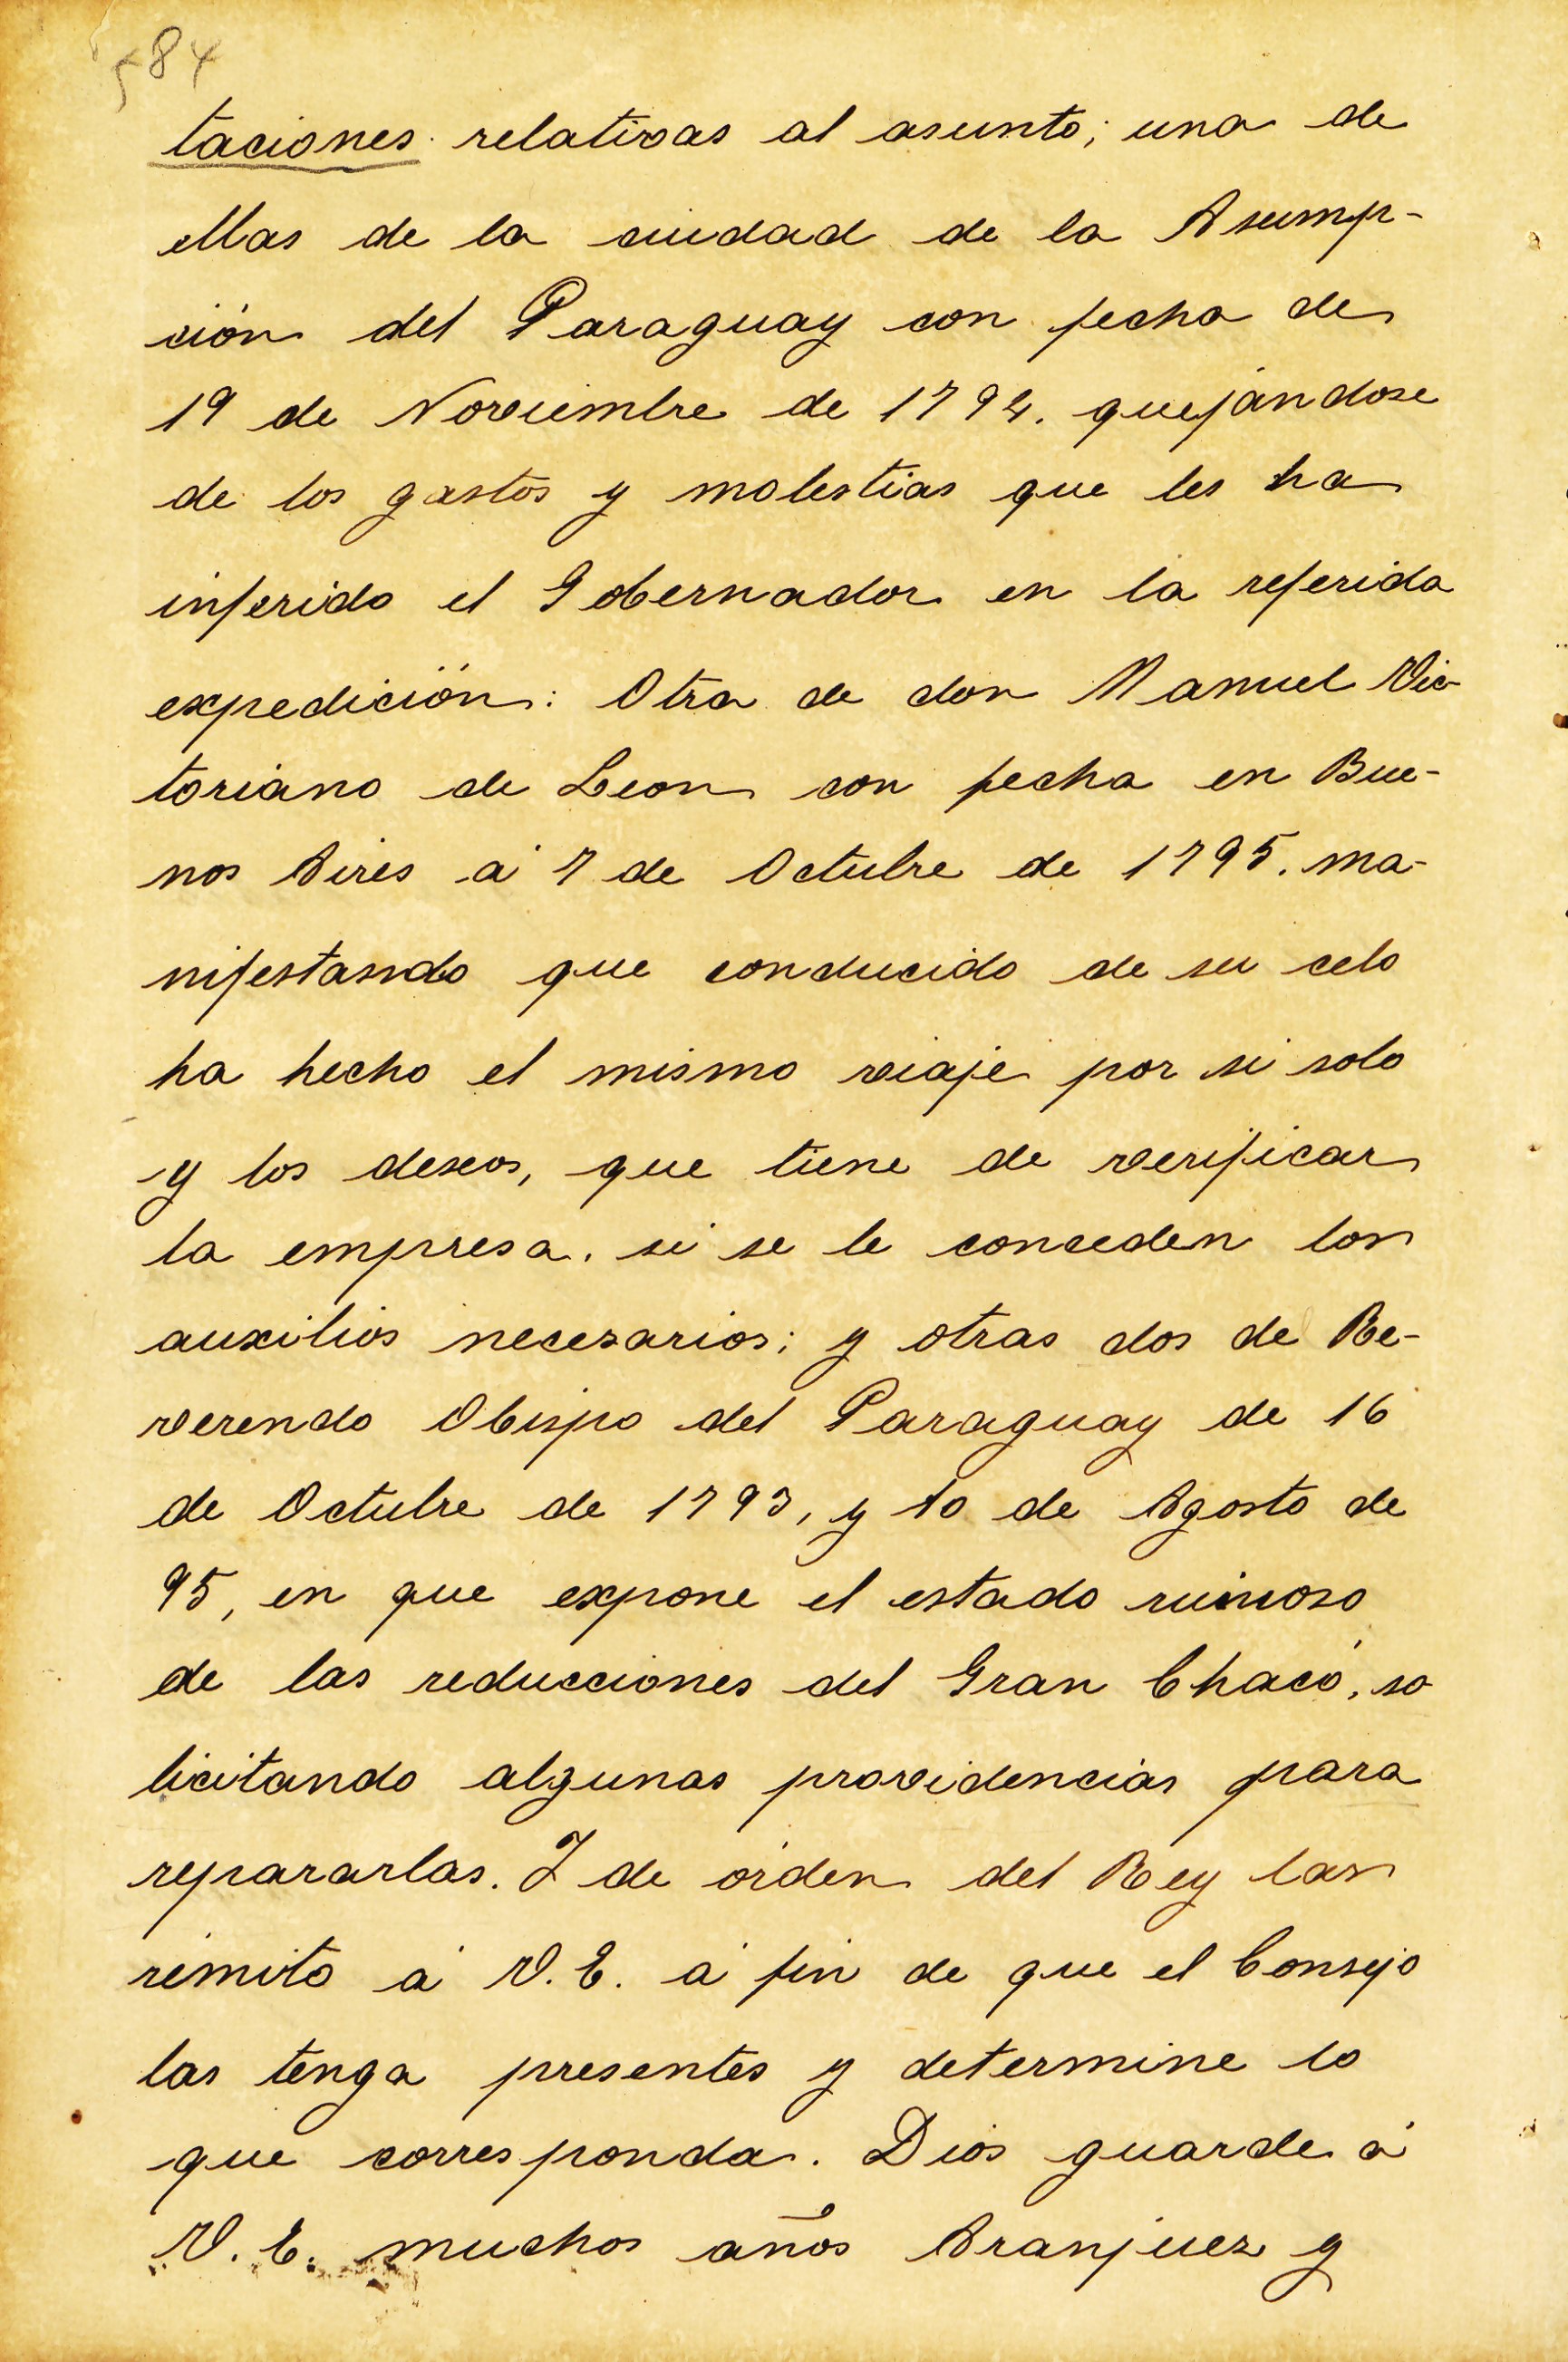 584
taciones relativas al asunto; una de
ellas de la ciudad de la Asump-
ción del Paraguay con fecha de
19 de Noviembre de 1794. quejándose
de los gastos y molestias que les ha
inferido el Gobernador en la referida
expedición: Otra de don Manuel Vic-
toriano de Leon con fecha en Bue-
nos Aires á 7 de Octubre de 1795. ma-
nifestando que conducido de su celo
ha hecho el mismo viaje por si solo
y los deseos, que tiene de verificar
la empresa. si se le conceden los
auxilios necesarios; y otras dos de Re-
verendo Obispo del Paraguay de 16
de Octubre de 1793, y 10 de Agosto de
95, en que expone el estado ruinoso
de las reducciones del Gran Chaco, so
licitando algunas providencias para
repararlas. I de orden del Rey las
remito á V. E. á fin de que el Consejo
las tenga presentes y determine lo
que corresponda. Dios guarde á
V. E. muchos años Aranjuez y